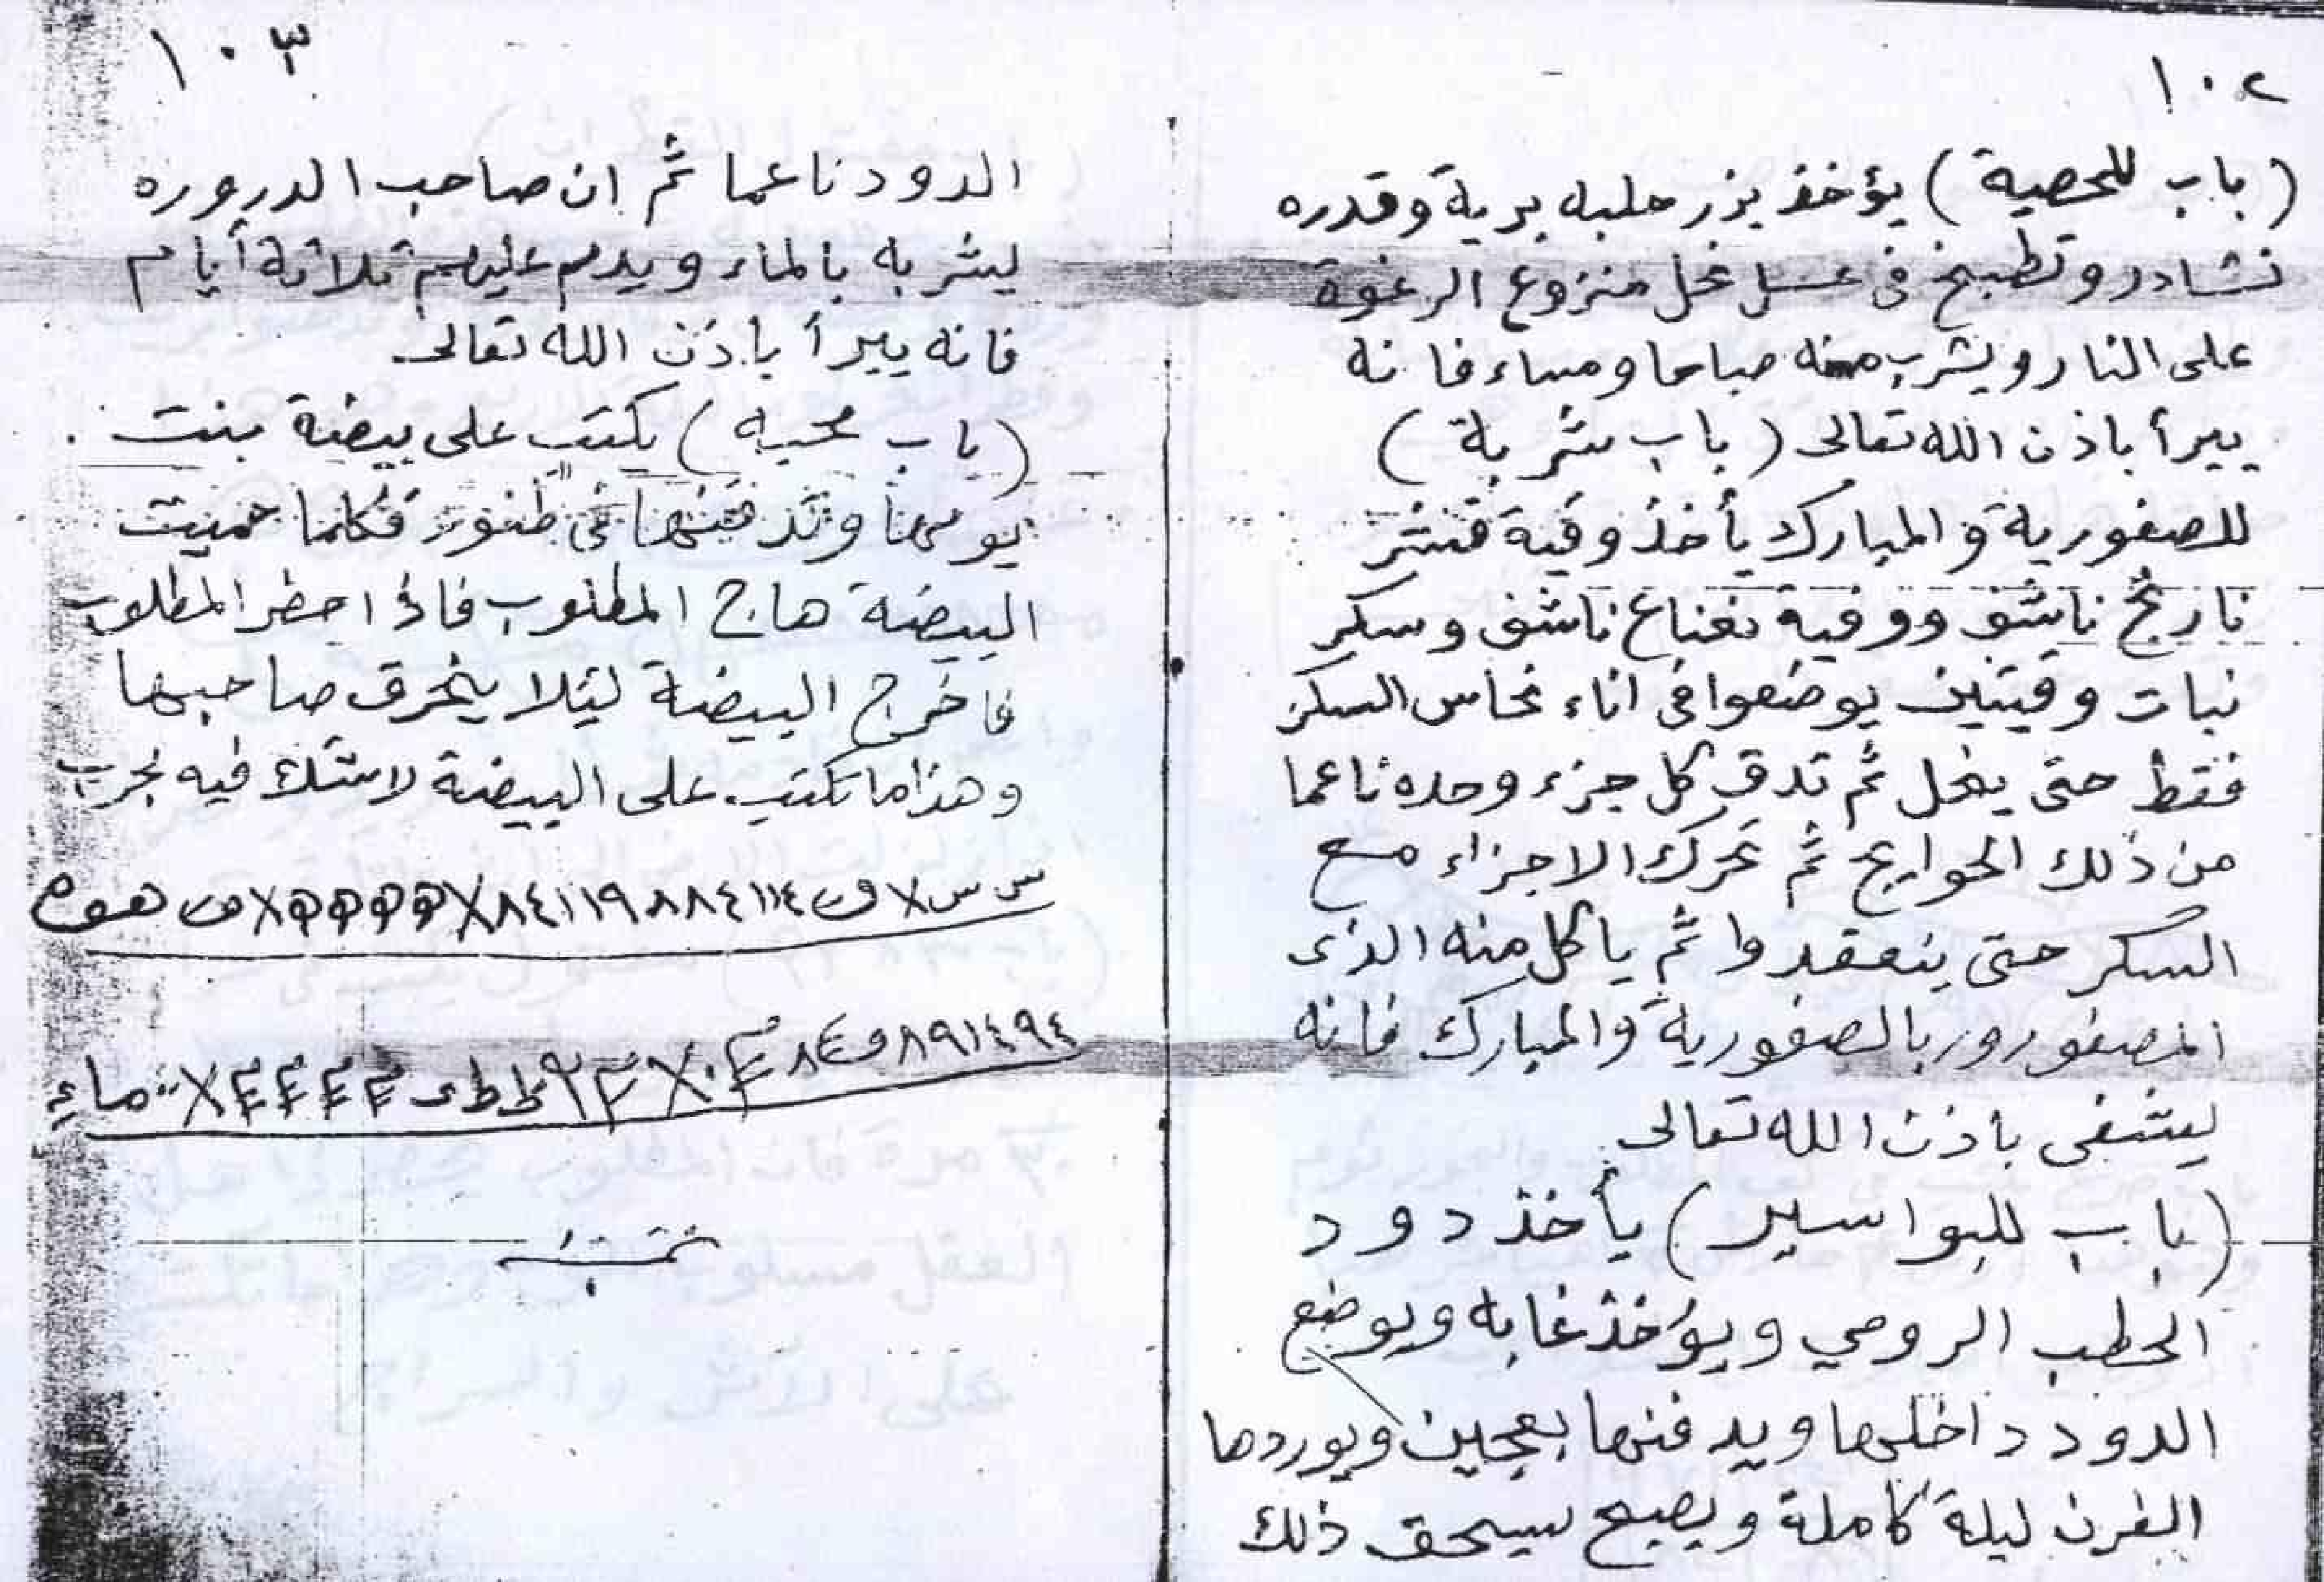 ١٠٢
(باب للحصية) يؤخذ بزر حلبه برية وقدره
نشادر وتطبخ فى عسل نحل منزوع الرغوة
على النار ويشرب منه صباحا ومساء فانه
يبرأ باذن الله تعالى (باب شربة)
للصفورية والمبارك يأخذ وقية قشر
نارنج ناشف ووقية نعناع ناشف وسكر
نبات وقيتين يوضعوا فى اناء نحاس السكر
فقط حتى ينحل ثم تدق كل جزء وحده ناعما
من ذلك الحوايج ثم تحرك الاجزاء مع
السكر حتى ينعقدوا ثم ياكل منه الذى
المصفورور بالصفورية والمبارك فانه
ليشفى باذن الله تعالى
(باب للبواسير) يأخذ دود
الحطب الرومي ويؤخذ غابه ويوضع
الدود داخلها ويدفنها بعجين ويوردها
الفرن ليلة كاملة ويصبح سيحق ذلك
١٠٣
الدود ناعما ثم ان صاحب
ليشربه بالماء ويدم عليهم ثلاثة أيام
فانه يبرأ باذن الله تعالى
(باب محبه) يكتب على بيضة بنت
يومها وتدفنها فى طنور فكلما حميت
البيضة هاج المطلوب فاذا حضر المطلوب
فاخرج البيضة ليئلا ينحرق صاحبها
وهذا ما تكتب على البيضة لاشك فيه مجرب
٨٩١٤٩٤
تمت